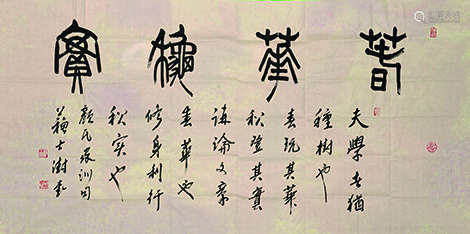 春華秋實
夫學者猶
種樹也
春玩其華
秋登其實
講論文章
春華也
修身利行
秋實也
顏氏家訓句
蘇士澍書